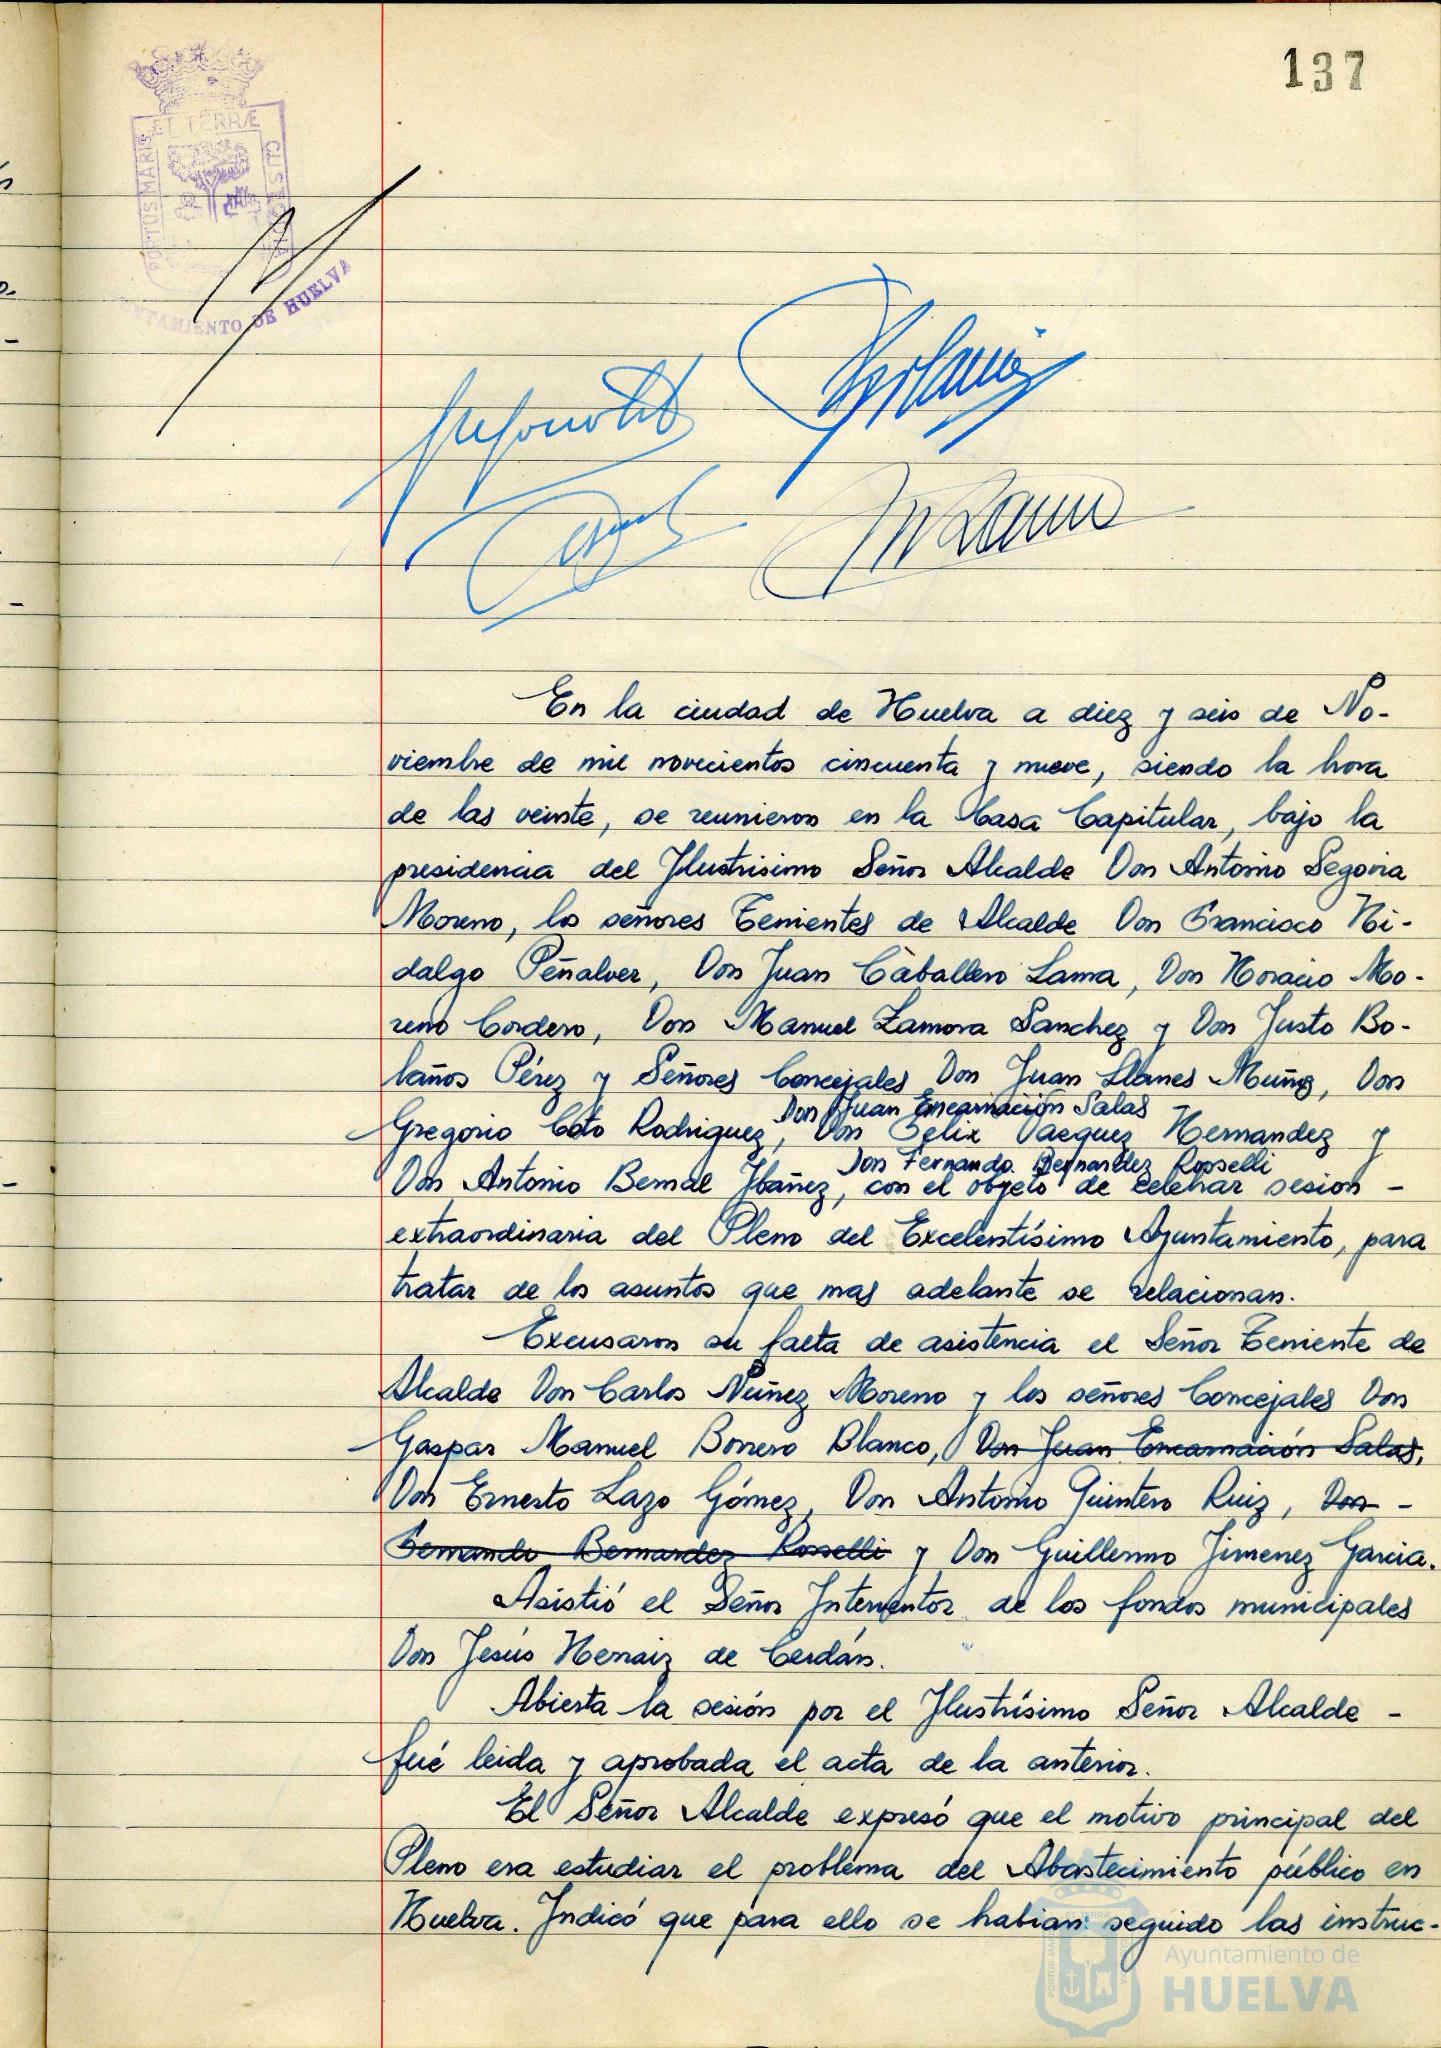 137
ET TERRÆ
PORTUS MARIS
CUSTODIA
AYUNTAMIENTO DE HUELVA
En la ciudad de Huelva a diez y seis de No-
viembre de mil novecientos cincuenta y nueve, siendo la hora
de las veinte, se reunieron en la Casa Capitular, bajo la
presidencia del Ilustrisimo Señor Alcalde Don Antonio Segovia
Moreno, los señores Tenientes de Alcalde Don Francisco Hi-
dalgo Peñalver, Don Juan Caballero Lama, Don Horacio Mo-
reno Cordero, Don Manuel Zamora Sanchez y Don Justo Bo-
laños Pérez y Señores Concejales Don Juan Llanes Muñoz, Don
Don Juan Encarnación Salas
Gregorio Coto Rodriguez, Don Felix Vazquez Hernandez y
Don Fernando Bernardez Rosselli
Don Antonio Bernal Ibañez, con el objeto de celebrar sesion -
extraordinaria del Pleno del Excelentísimo Ayuntamiento, para
tratar de los asuntos que mas adelante se relacionan.
Excusaron su falta de asistencia el Señor Teniente de
Alcalde Don Carlos Núñez Moreno y los señores Concejales Don
Gaspar Manuel Borrero Blanco, Don Juan Encarnación Salas,
Don Ernesto Lazo Gómez, Don Antonio Quintero Ruiz, Don -
Fernando Bernardez Rosselli y Don Guillermo Jimenez Garcia.
Asistió el Señor Interventor de los fondos municipales
Don Jesús Hernaiz de Cerdán.
Abierta la sesión por el Ilustrísimo Señor Alcalde -
fué leida y aprobada el acta de la anterior.
El Señor Alcalde expresó que el motivo principal del
Pleno era estudiar el problema del Abastecimiento público en
Huelva. Indicó que para ello se habian seguido las instruc-
Ayuntamiento de
HUELVA